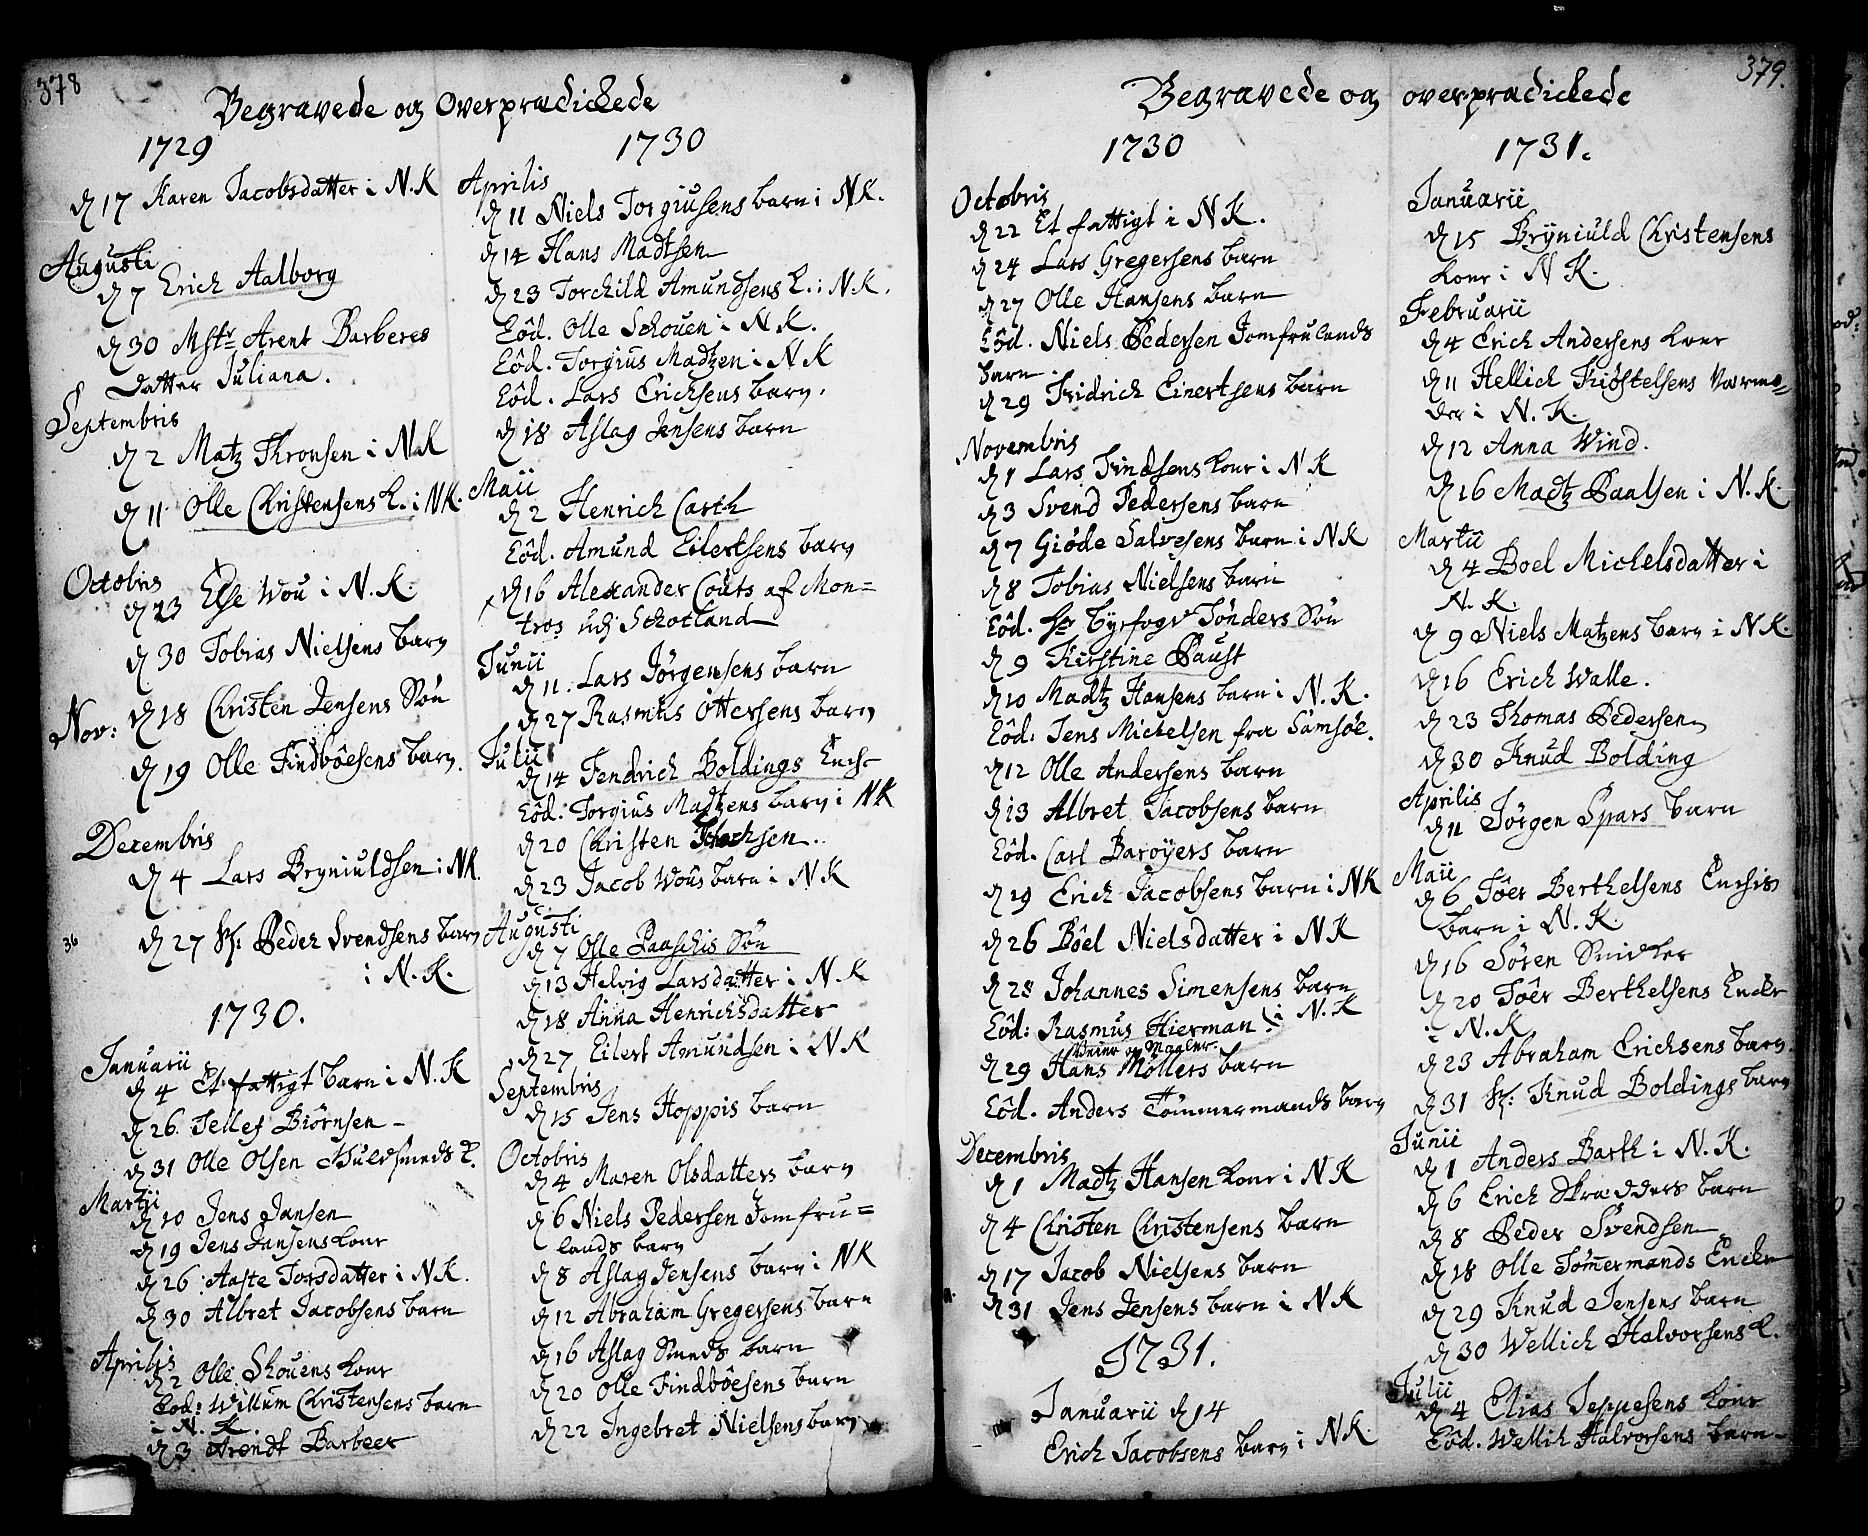 378
Begravede og Overprædickede
1729
d 17 Karen Jacobsdatter i N.K
Augusti
d 7 Erich Aalborg
d 30 Mstr Arent Barberes
datter Juliana.
Septembris
d 2 Matz Thronsen i N.K
d 11 Olle Christensens k. i N.K.
Octobris
d 23 Else Wou i N.K.
d 30 Tobias Nielsens barn
Nov: d 18 Christen Jensens Søn
d 19 Olle Findbôesens barn.
Decembris
d 4 Lars Bryniuldsen i N.K.
36
d 27 Sr: Peder Svendsens barn
i N.K.
1730.
Januarii
d 4 Et fattigt barn i N.K
d 26 Tellef Biørnsen
d 31 Olle Olsen Guldsmeds b.
Martii
d 10 Jens Jansen
d 19 Jens Jansens kone
d 26 Aaste Torsdatter i N.K.
d 30 Albret Jacobsens barn
Aprilis
d 2 Olle Skouens kone
Eod: Willum Christensens barn
i N.K.
d 3 Arendt Barbeer
1730
Aprilis
d 11 Niels Torgiusens barn i N.K.
d 14 Hans Madtsen
d 23 Torchild Amundsens k. i N.K.
Eôd. Olle Schouen i N.K.
Eôd. Torgius Madtzen i N.K
Eôd. Lars Erichsens barn.
d 18 Aslag Jensens barn
Maii
d 2 Henrich Carth
Eôd. Amund Eilertsens barn
d 16 Alexander Couts af Mon=
tros udj Schotland
Junii
d 11. Lars Jörgensens barn
d 27 Rasmus Ottersens barn
Julii
d 14 Fendrich Boldings Ench
Eôd: Torgius Madtzens barn i NK
d 20 Christen
d 23 Jacob Wous barn i N K
Augusti
d 7 Olle Paaschis Søn
d 13 Helvig Larsdatter i N.K
d 18 Anna Henrichsdatter
d 27 Eilert Amundsen i N K
Septembris
d 15 Jens Hoppis barn
Octobris
d 4 Maren Olsdatters barn
d 6 Niels Pedersen Jomfru=
lands barn
d 8 Aslag Jensens barn i NK
d 12 Abraham Gregersens barn
d 16 Aslag Smeds barn
d 20 Olle Findbôesens barn
d 22 Ingebret Nielsens barn
379.
Begravede og overprædickede
1730
Octobris
d 22 Et fattigt i N K.
d 24 Lars Gregersens barn
d 27 Olle Hansens barn
Eôd. Niels Pedersen Jomfrulands
barn
d 29 Fridrich Einertsens barn
Novembris
d 1 Lars Findsens kone i N K
d 3 Svend Pedersens barn
d 7 Giôde Salvesens barn i N K
d 8 Tobias Nielsens barn
Eôd. Hr Byefogd Tônders Søn
d 9 Kirstine Paust
d 10 Madtz Hansens barn i N.K.
Eôd: Jens Michelsen fra Samsöe.
d 12 Olle Andersens barn
d 13 Albret Jacobsens barn
Eôd. Carl Baroyers barn
d 19 Erich Jacobsens barn i NK
d 26 Bôel Nielsdatter i N K
d 28 Johannes Simensens barn
i N.K
Eôd: Rasmus Hierman
Veier og Maaler.
d 29 Hans Mollers barn
Eôd. Anders Tömmermands barn
Decembris
d 1 Madtz Hansen kone i N K
d 4 Christen Christensens barn
d 17 Jacob Nielsens barn
d 31 Jens Jensens barn i N K
1731.
Januarii d 14
Erich Jacobsens barn i N K.
1731.
Januarii
d 15 Bryniuld Christensens
kone i N K.
Februarii
d 4 Erich Andersens kone
d 11 Hellich Kiøstelsens Værmo=
der i N.K.
d 12 Anna Wind.
d 16 Madtz Paalsen i N.K.
Martii
d 4 Boel Michelsdatter i
N.K.
d 9 Niels Matzens barn i N K.
d 16 Erich Walle.
d 23 Thomas Pedersen
d 30 Knud Bolding
Aprilis
d 11 Jörgen Spars barn
Maii
d 6 Töer Berthelsens Enchis
barn i N.K.
d 16 Sören Snidker
d 20 Töer Berthelsens Encke
i N.K.
d 23 Abraham Erichsens barn.
d 31 Sr: Knud Boldings barn
Junii
d 1 Anders Barth i N.K.
d 6 Erich Skrædders barn
d 8 Peder Svendsen
d 18 Olle Tömmermands Encke
d 29 Knud Jensens barn
d 30 Wellich Halvorsens k.
Julii
d 4 Elias Jespesens kone
Eôd. Wellich Halvorsens barn